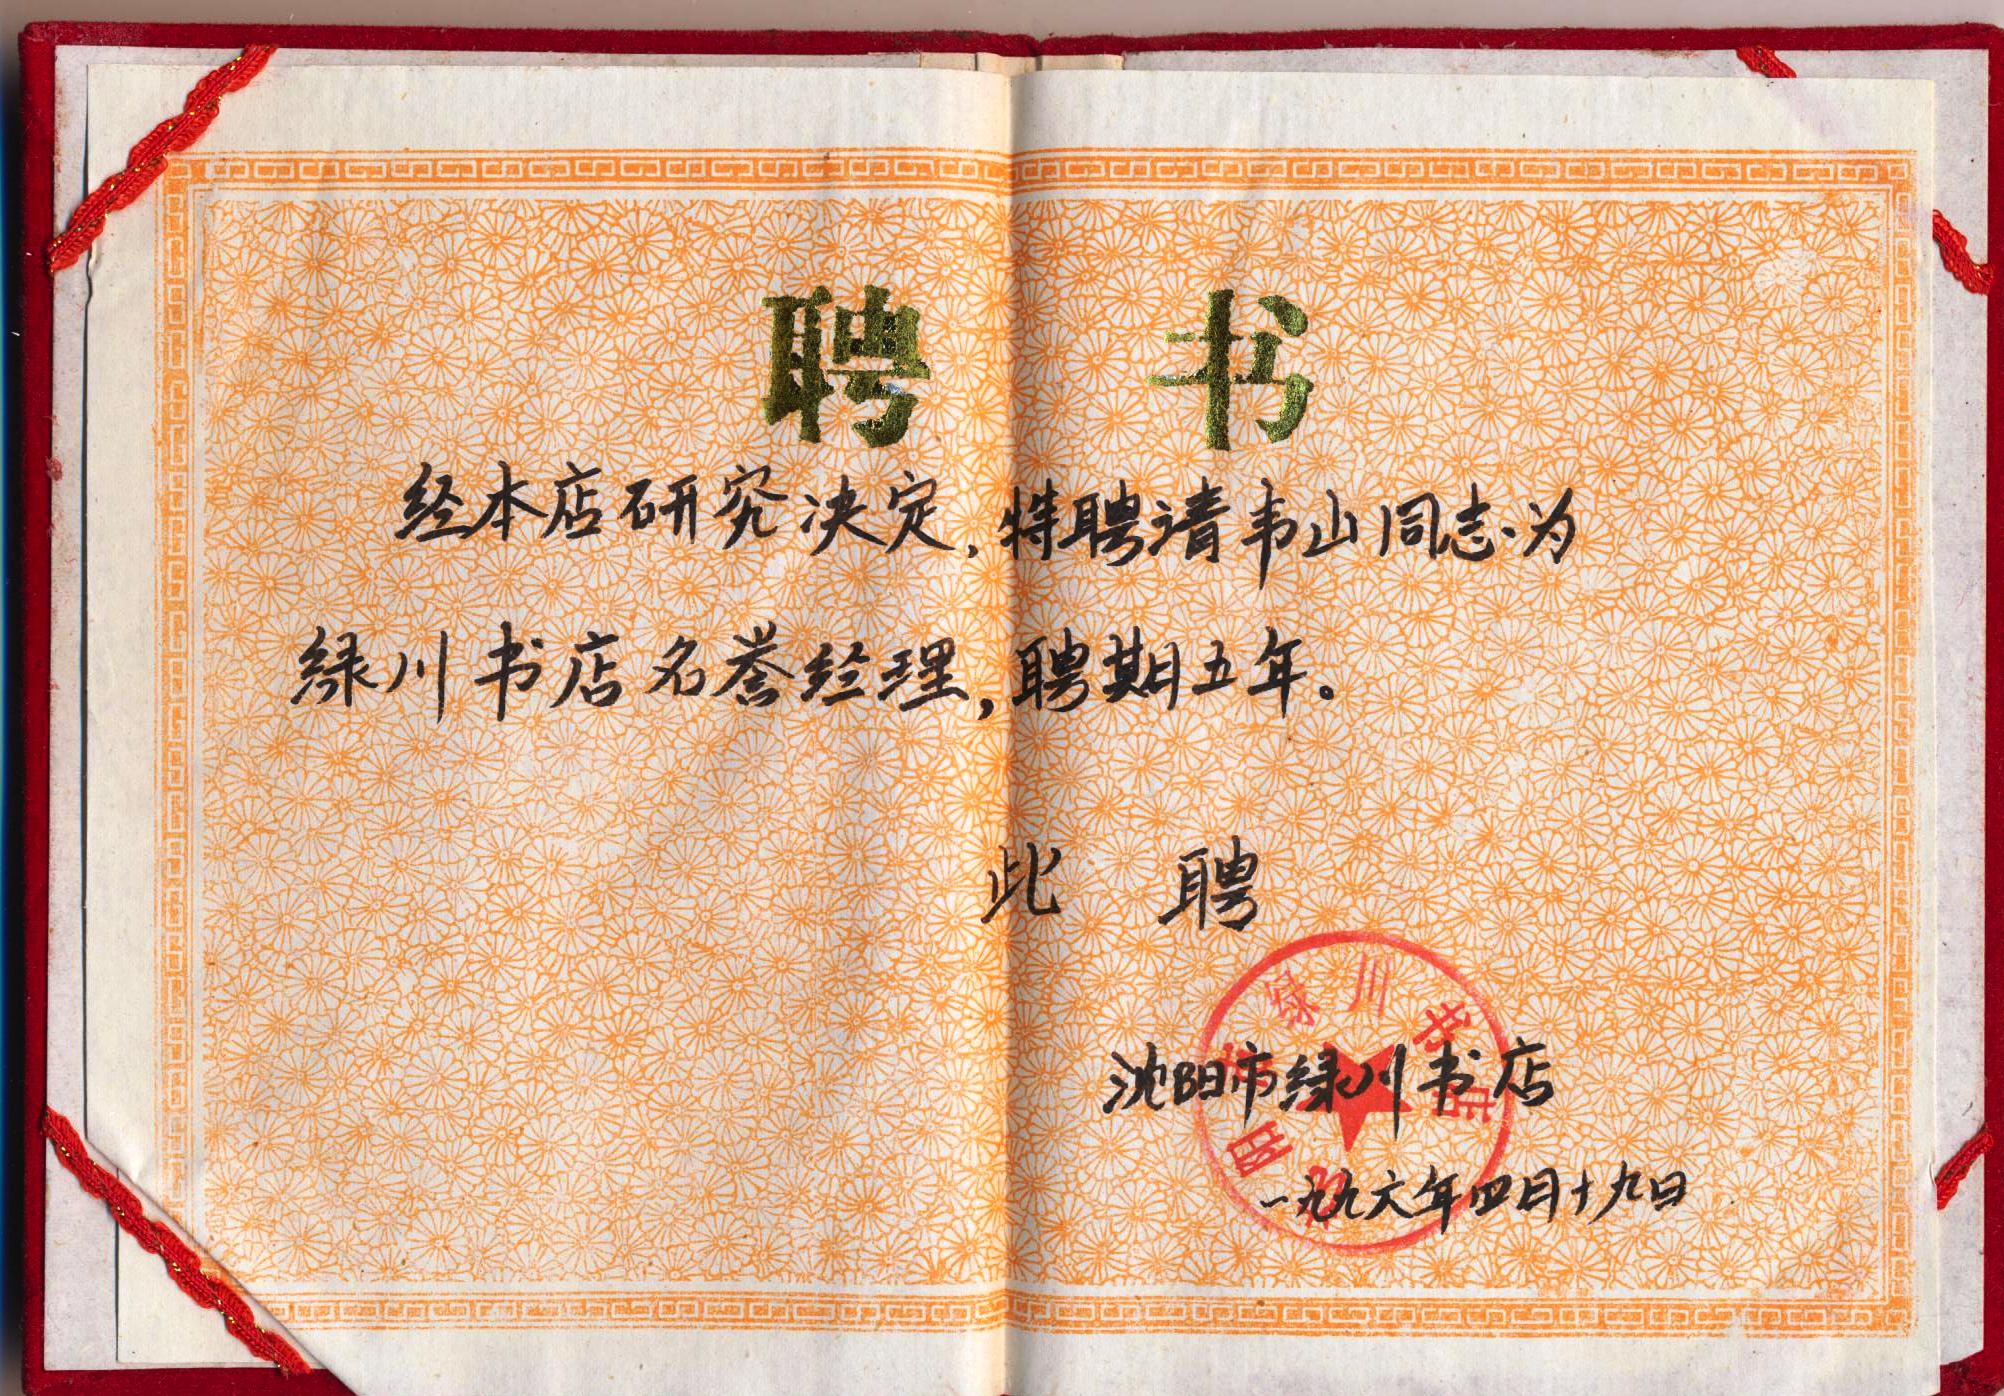 聘书
经本店研究决定,特聘请韦山同志为
绿川书店名誉经理,聘期五年。
此聘
沈阳市绿川书店
一九九六年四月十九日
绿川书店